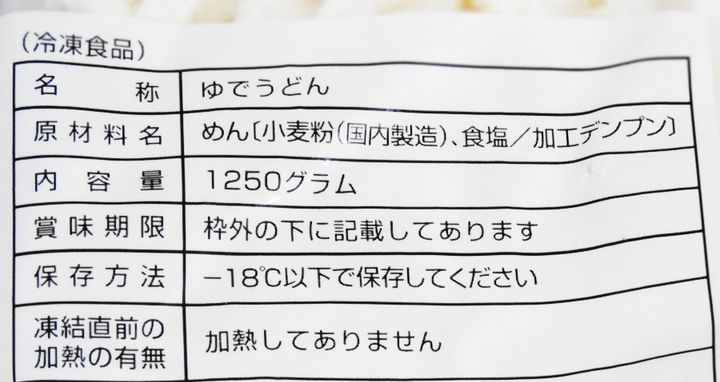 (冷凍食品)
名称 ゆでうどん
原材料名 めん〔小麦粉(国内製造)、食塩／加工デンプン〕
内容量 1250グラム
賞味期限 枠外の下に記載してあります
保存方法 −18℃以下で保存してください
凍結直前の
加熱の有無 加熱してありません